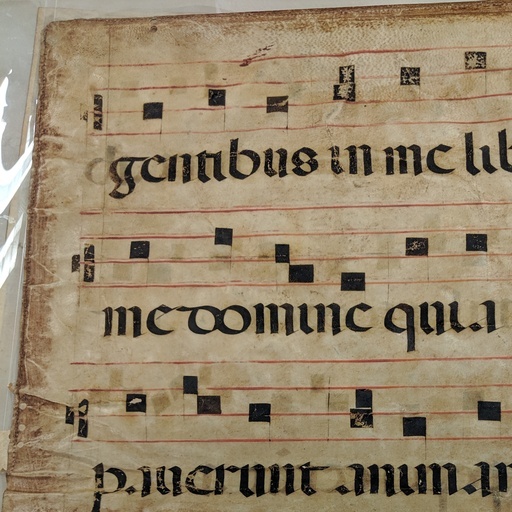 gentibus in me lib
me domine quia
paverunt animam